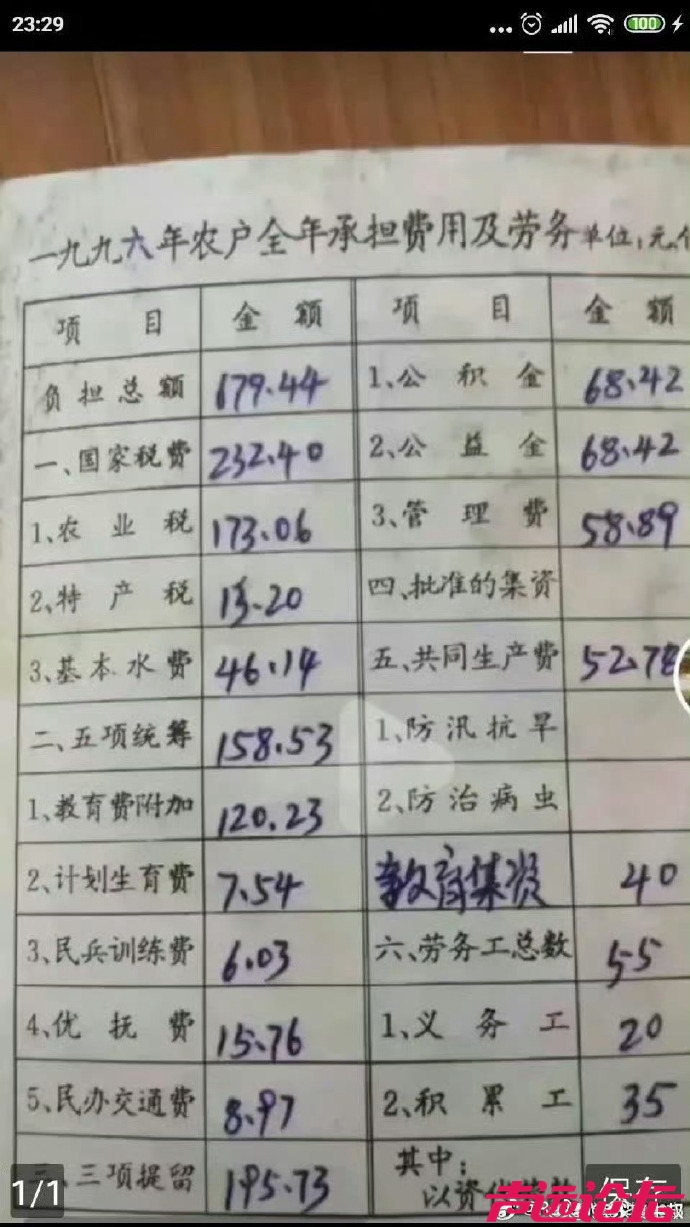 23:29
100
一九九六年农户全年承担费用及劳务 单位:元、
项 目 金 额 项 目 金 额
负担总额 679.44 1、公积金 68.42
一、国家税费 232.40 2、公益金 68.42
1、农业税 173.06 3、管理费 58.89
2、特产税 13.20 四、批准的集资
3、基本水费 46.14 五、共同生产费 52.78
二、五项统筹 158.53 1、防汛抗旱
1、教育费附加 120.23 2、防治病虫
2、计划生育费 7.54 教育集资 40
3、民兵训练费 6.03 六、劳务工总数 55
4、优抚费 15.76 1、义务工 20
5、民办交通费 8.97 2、积累工 35
三、三项提留 195.73 其中:
以资
1/1
保存
声远论坛